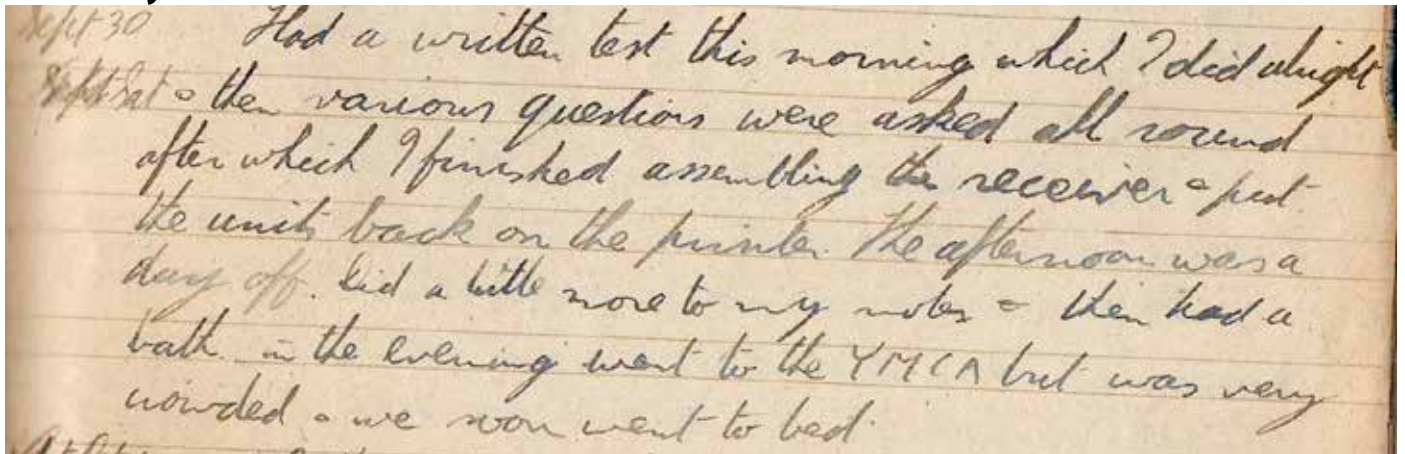 Sept 30 Had a written test this morning which I did alright
Sat & then various questions were asked all round
after which I finished assembling the receiver & put
the units back on the printer. The afternoon was a
day off. Did a little more to my notes & then had a
bath in the evening went to the YMCA but was very
crowded & we soon went to bed.